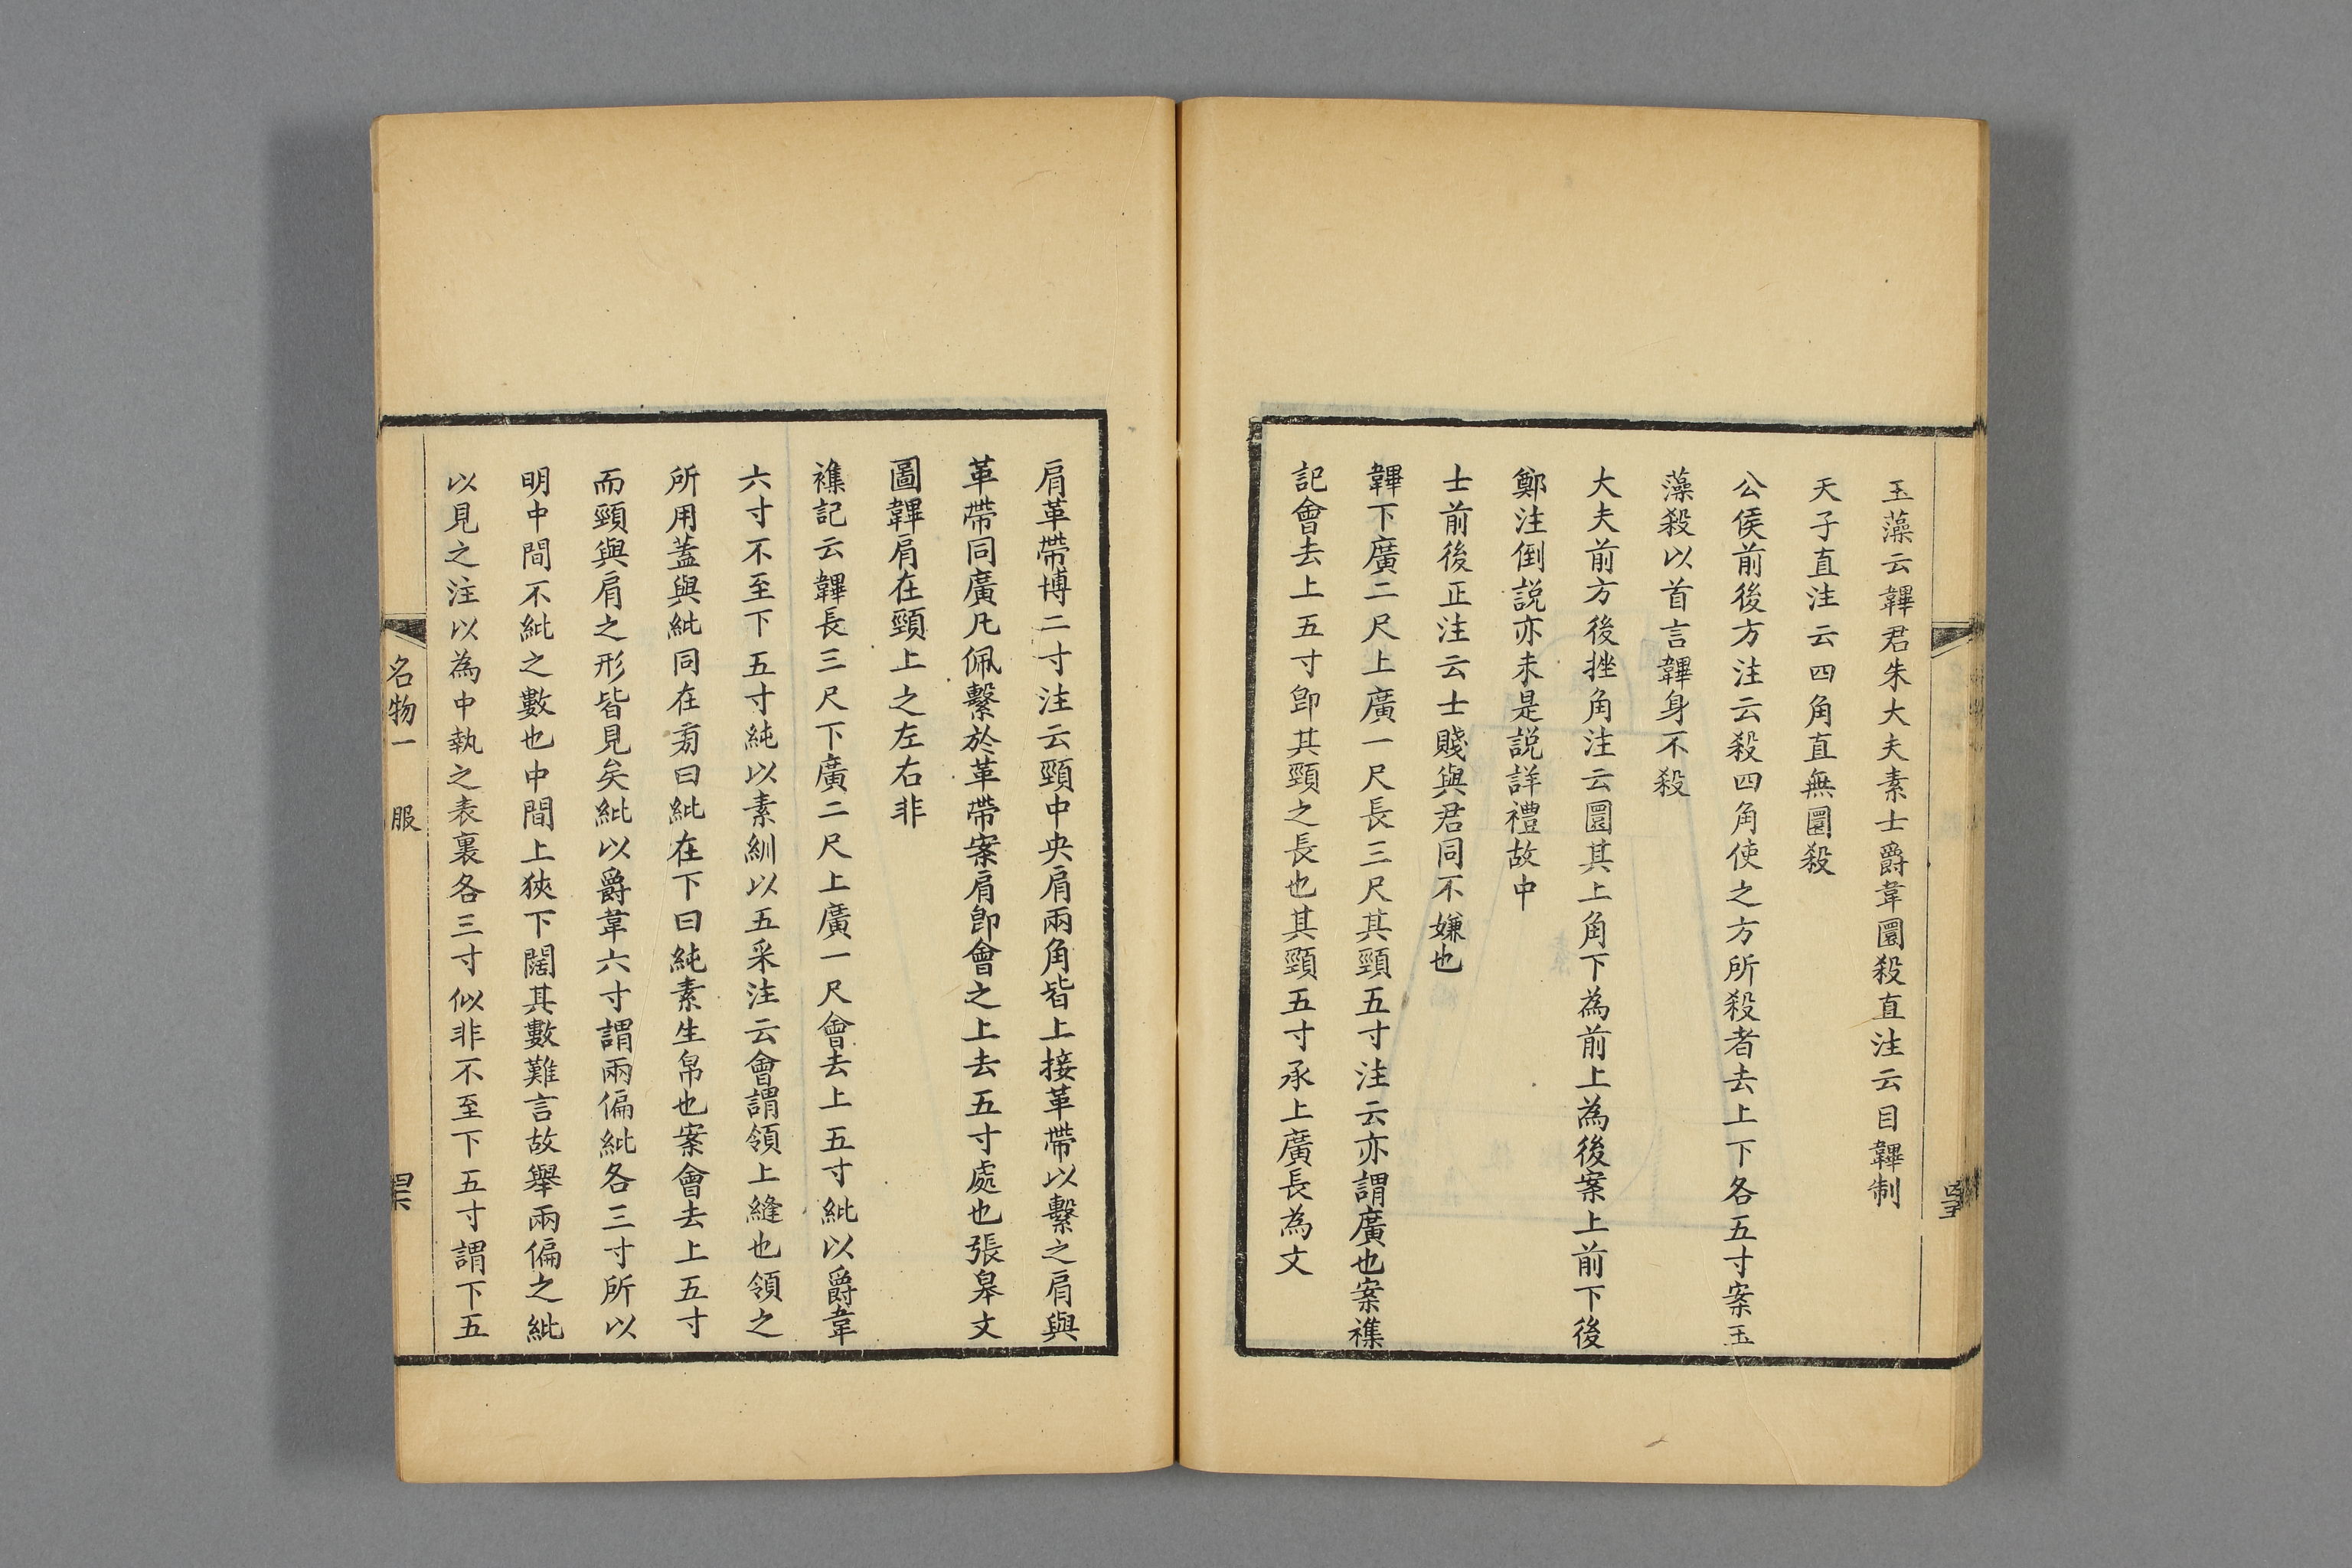 玉藻云韠君朱大夫素士爵韋圜殺直注云目韠制
天子直注云四角直無圜殺
公侯前後方注云殺四角使之方所殺者去上下各五寸案玉
藻殺以首言韠身不殺
大夫前方後挫角注云圜其上角下為前上為後案上前下後
鄭注倒説亦未是説詳禮故中
士前後正注云士賤與君同不嫌也
韠下廣二尺上廣一尺長三尺其頸五寸注云亦謂廣也案襍
記會去上五寸卽其頸之長也其頸五寸承上廣長為文
肩革帶博二寸注云頸中央肩兩角皆上接革帶以繫之肩與
革帶同廣凡佩繫於革帶案肩卽會之上去五寸處也張皋文
圖韠肩在頸上之左右非
襍記云韠長三尺下廣二尺上廣一尺會去上五寸紕以爵韋
六寸不至下五寸純以素紃以五采注云會謂領上縫也領之
所用蓋與紕同在旁曰紕在下曰純素生帛也案會去上五寸
而頸與肩之形皆見矣紕以爵韋六寸謂兩偏紕各三寸所以
明中間不紕之數也中間上狹下闊其數難言故舉兩偏之紕
以見之注以為中執之表裏各三寸似非不至下五寸謂下五
名物一 服